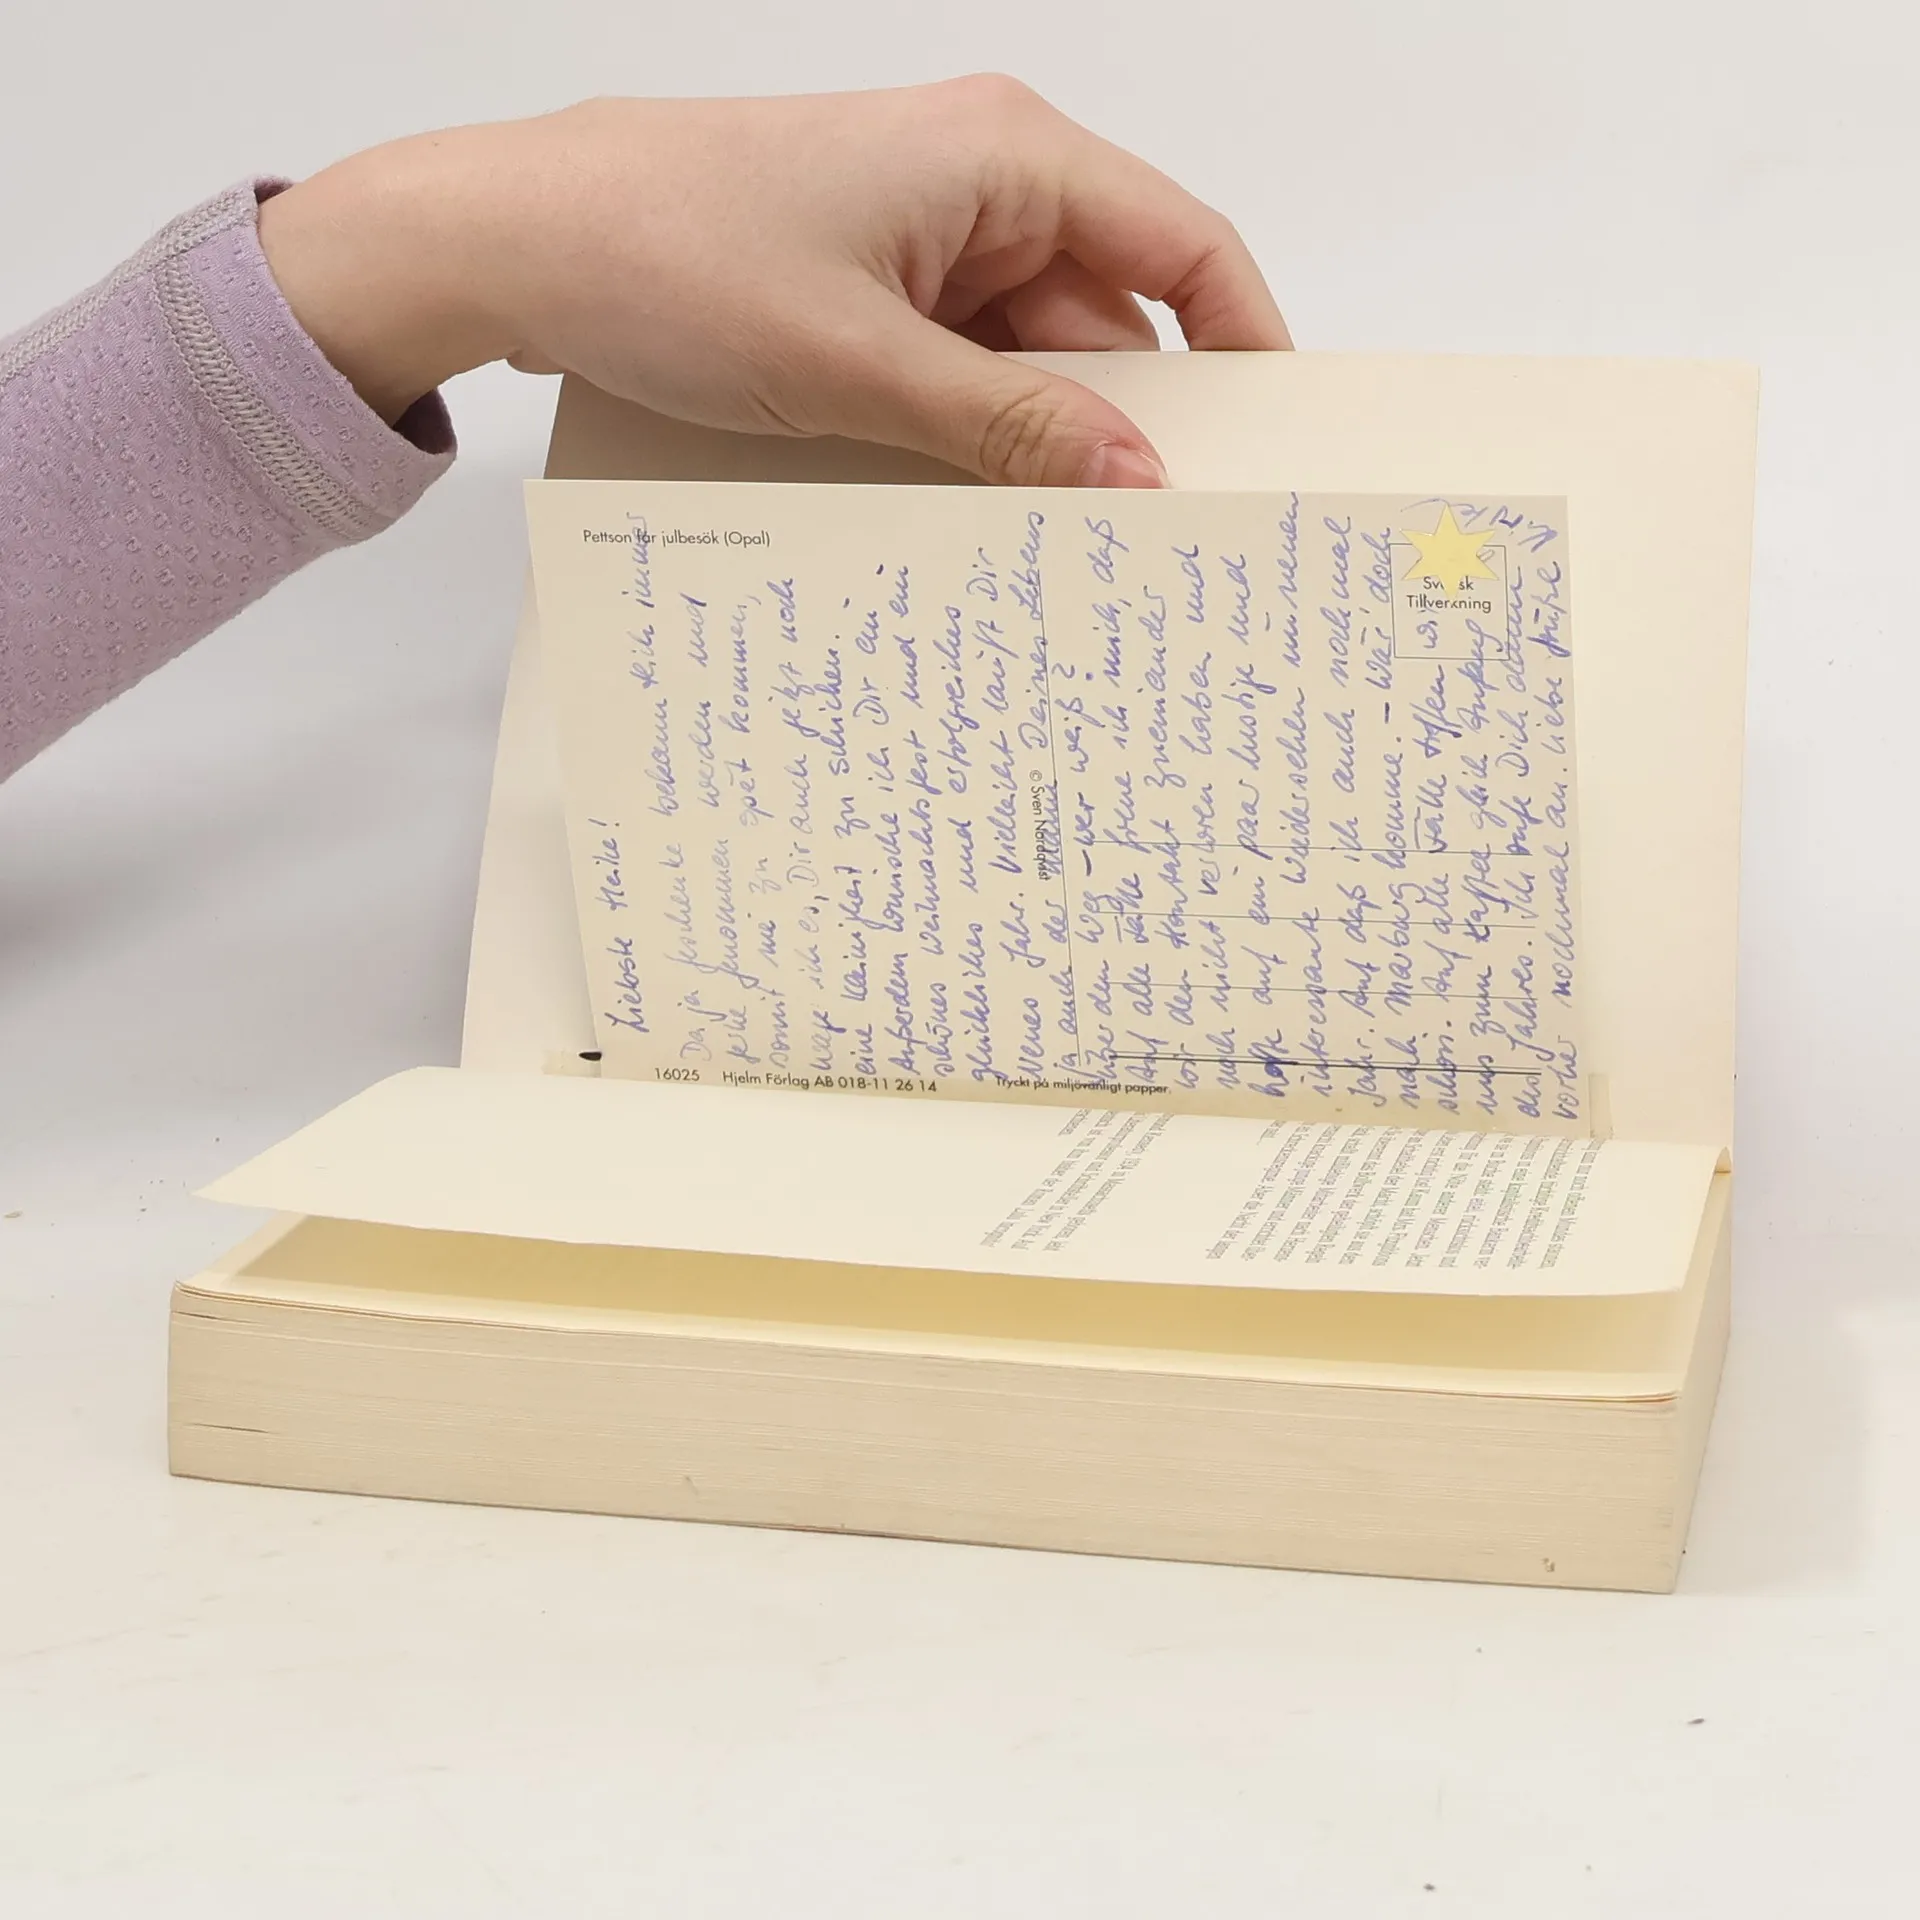 Pettson får julbesök (Opal)
Svensk
Tillverkning
© Sven Nordqvist
16025 Hjelm Förlag AB 018-11 26 14
Tryckt på miljövänligt papper.
Liebste Heike!
Da ja Geschenke bekanntlich immer
gerne genommen werden und
somit nie zu spät kommen,
wage ich es, Dir auch jetzt noch
eine Kleinigkeit zu schicken.
Außerdem wünsche ich Dir ein
schönes Weihnachtsfest und ein
glückliches und erfolgreiches
Neues Jahr. Vielleicht läuft Dir
ja auch der Mann Deines Lebens
über den Weg – wer weiß?
Auf alle Fälle freue ich mich, daß
wir den Kontakt zueinander
noch nicht verloren haben und
hoffe auf ein paar lustige und
interessante Wiedersehen im neuen
Jahr. Auf daß ich auch nochmal
nach Marburg komme. – Wär' doch
schön. Auf alle Fälle treffen wir
uns zum Kaffee gleich Anfang
des Jahres. Ich rufe Dich dann
vorher nochmal an. Liebe Grüße